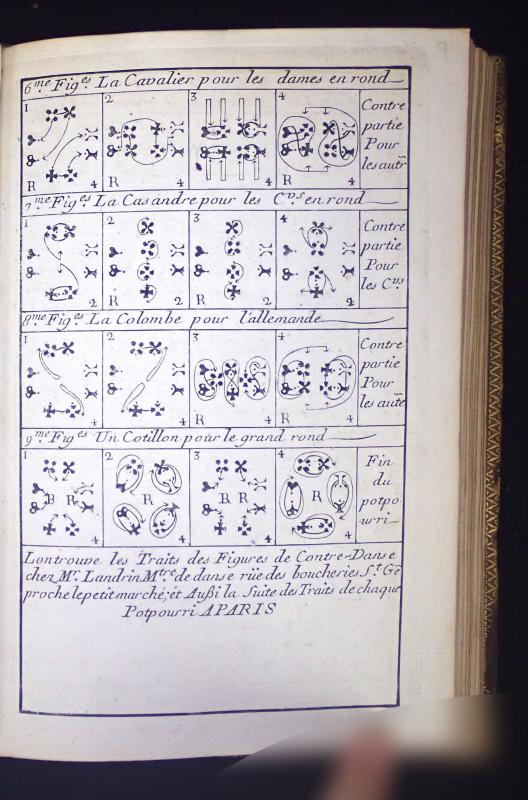 9
6.me Fig.es La Cavalier pour les dames en rond
1 2 3 4
Contre
partie
Pour
les autr
R 4 R 4 4 R 4
7.me Fig.es La Casandre pour les C.vs en rond
1 2 3 4
Contre
partie
Pour
les C.vs
2 R 2 R 2 2
8.me Fig.es La Colombe pour l'allemande
1 2 3 4
Contre
partie
Pour
les autr
4 4 R 4 R 4
9.me Fig.es Un Cotillon pour le grand rond
1 2 3 4
B R R B R R
Fin
du
potpo
urri
4 4 4 4
Lontrouve les Traits des Figures de Contre-Danse
chez M.r Landrin M.tre de danse rüe des boucheries S.t Ge
proche le petit marché; et Außi la Suite des Traits de chaque
Potpourri APARIS